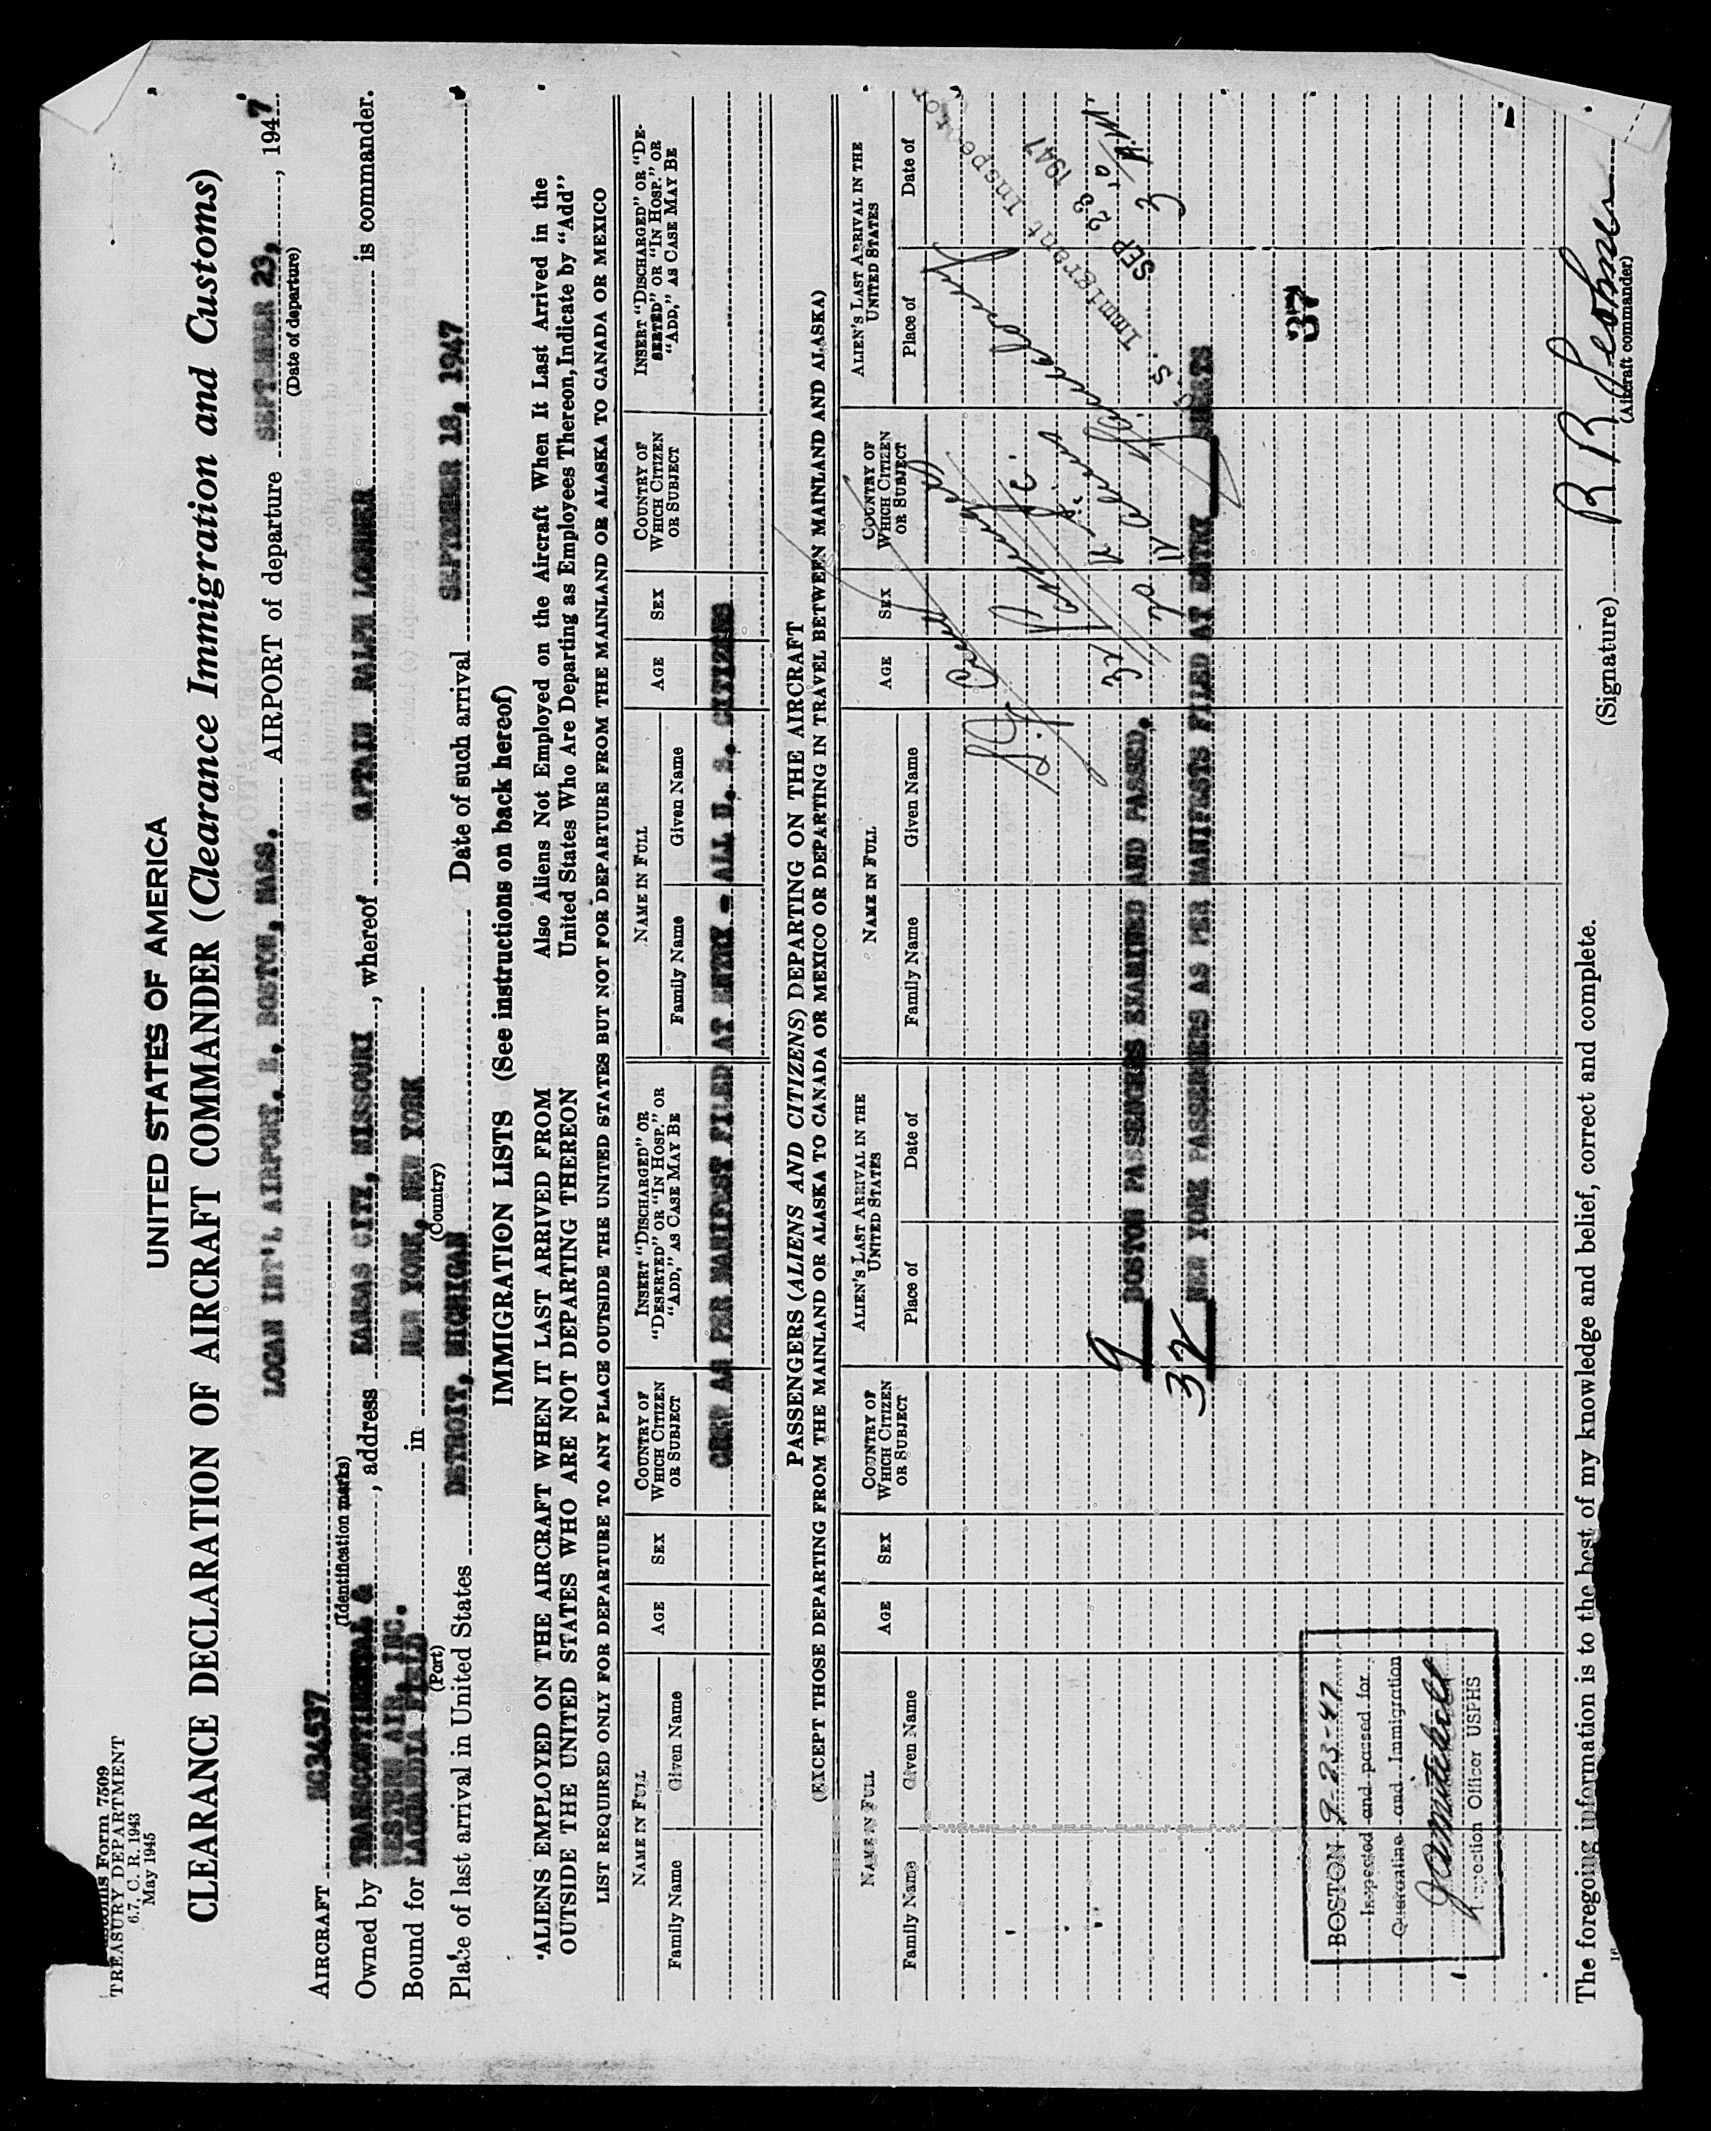 Customs Form 7509
TREASURY DEPARTMENT
6.7, C. R. 1943
May 1945
UNITED STATES OF AMERICA
CLEARANCE DECLARATION OF AIRCRAFT COMMANDER (Clearance Immigration and Customs)
LOGAN INT'L AIRPORT, E. BOSTON, MASS. AIRPORT of departure SEPTEMBER 23, 1947
(Date of departure)
AIRCRAFT NC34537
(Identification marks)
Owned by TRANSCONTINENTAL & WESTERN AIR, INC., address KANSAS CITY, MISSOURI, whereof CAPTAIN RALPH LOHNER is commander.
Bound for LAGUARDIA FIELD in NEW YORK, NEW YORK
(Port) (Country)
Place of last arrival in United States DETROIT, MICHIGAN Date of such arrival SEPTEMBER 18, 1947
IMMIGRATION LISTS (See instructions on back hereof)
ALIENS EMPLOYED ON THE AIRCRAFT WHEN IT LAST ARRIVED FROM
OUTSIDE THE UNITED STATES WHO ARE NOT DEPARTING THEREON
Also Aliens Not Employed on the Aircraft When It Last Arrived in the
United States Who Are Departing as Employees Thereon, Indicate by "Add"
LIST REQUIRED ONLY FOR DEPARTURE TO ANY PLACE OUTSIDE THE UNITED STATES BUT NOT FOR DEPARTURE FROM THE MAINLAND OR ALASKA TO CANADA OR MEXICO
NAME IN FULL AGE SEX COUNTRY OF WHICH CITIZEN OR SUBJECT INSERT "DISCHARGED" OR "DESERTED" OR "IN HOSP." OR "ADD," AS CASE MAY BE NAME IN FULL AGE SEX COUNTRY OF WHICH CITIZEN OR SUBJECT INSERT "DISCHARGED" OR "DESERTED" OR "IN HOSP." OR "ADD," AS CASE MAY BE
Family Name Given Name Family Name Given Name
CREW AS PER MANIFEST FILED AT ENTRY - ALL U. S. CITIZENS
PASSENGERS (ALIENS AND CITIZENS) DEPARTING ON THE AIRCRAFT
(EXCEPT THOSE DEPARTING FROM THE MAINLAND OR ALASKA TO CANADA OR MEXICO OR DEPARTING IN TRAVEL BETWEEN MAINLAND AND ALASKA)
NAME IN FULL AGE SEX COUNTRY OF WHICH CITIZEN OR SUBJECT ALIEN'S LAST ARRIVAL IN THE UNITED STATES NAME IN FULL AGE SEX COUNTRY OF WHICH CITIZEN OR SUBJECT ALIEN'S LAST ARRIVAL IN THE UNITED STATES
Family Name Given Name Place of Date of Family Name Given Name Place of Date of
Immigrant Inspector
SEP 23 1947
9 BOSTON PASSENGERS EXAMINED AND PASSED.
32 NEW YORK PASSENGERS AS PER MANIFESTS FILED AT ENTRY SHEETS
37
BOSTON 9-23-47
Inspected and passed for
Quarantine and Immigration
Inspection Officer USPHS
The foregoing information is to the best of my knowledge and belief, correct and complete.
(Signature) R R Lohner
(Aircraft commander)
16